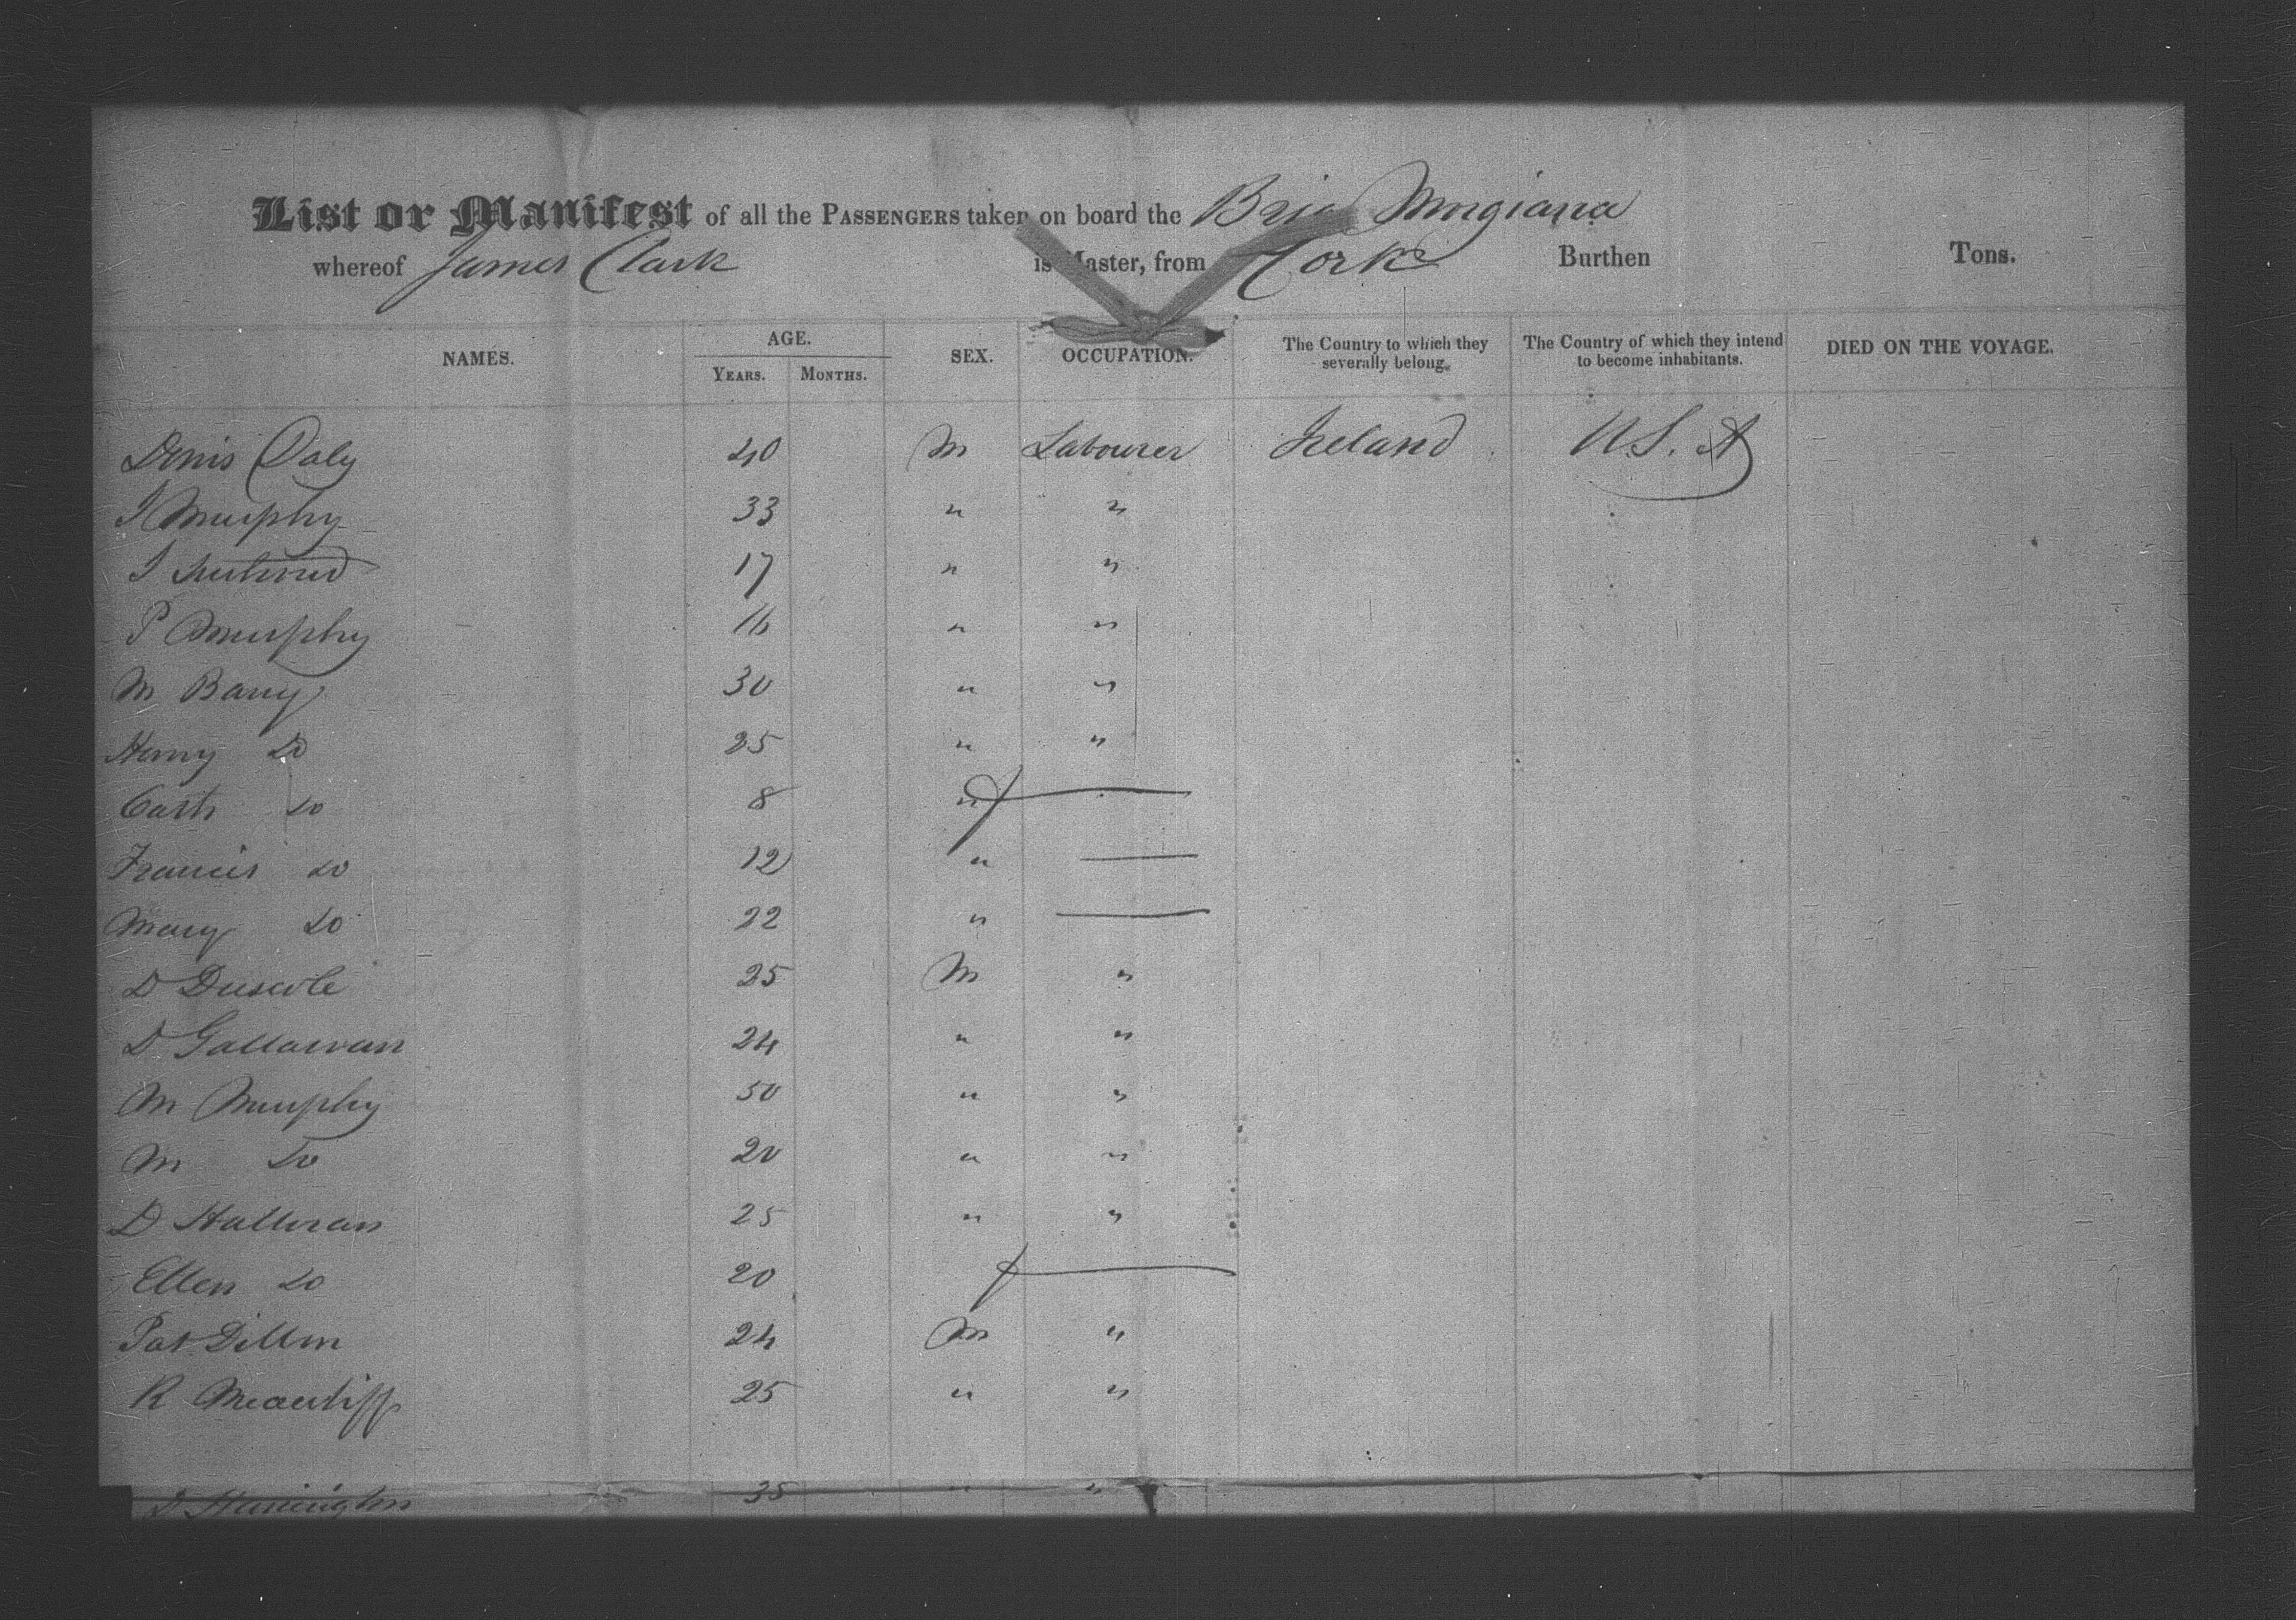 List or Manifest of all the PASSENGERS taken on board the Brig Morgiana
whereof James Clark is Master, from Cork Burthen Tons.
NAMES. AGE. YEARS. MONTHS. SEX. OCCUPATION. The Country to which they severally belong. The Country of which they intend to become inhabitants. DIED ON THE VOYAGE.
Denis Daly 40 M Labourer Ireland U.S.A
J Murphy 33 " "
J 17 " "
P Murphy 16 " "
M Barry 30 " "
Henry Do 25 " "
Cath Do 8 " f —
Francis Do 12 " —
Mary Do 22 " —
D Driscole 25 M "
D Gallawan 24 " "
M Murphy 50 " "
M Do 20 " "
D Halloran 25 " "
Ellen Do 20 f —
Pat Dillon 24 M "
R Mcauliff 25 " "
D Harrington 35 " "